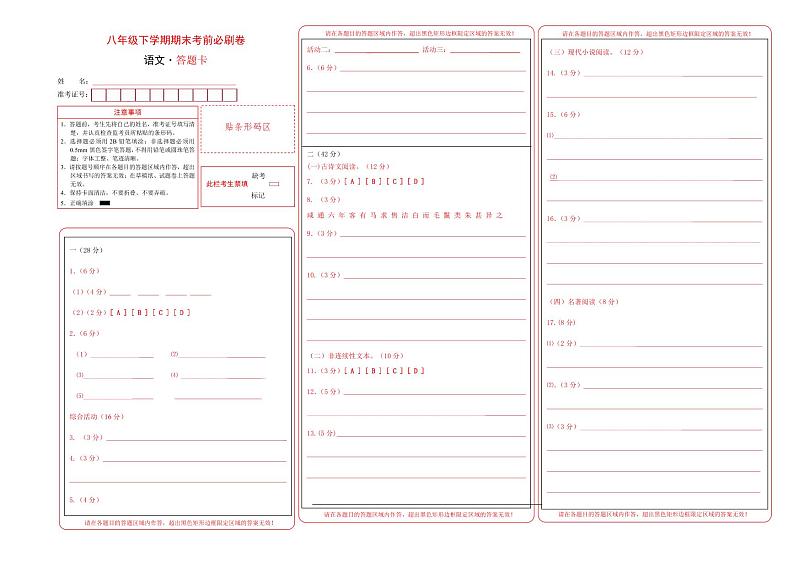 八年级下学期期末考前必刷卷
语文·答题卡
姓 名：
准考证号：
注意事项
1．答题前，考生先将自己的姓名，准考证号填写清
楚，并认真检查监考员所粘贴的条形码。
2．选择题必须用2B铅笔填涂；非选择题必须用
0.5mm黑色签字笔答题，不得用铅笔或圆珠笔答
题；字体工整、笔迹清晰。
3．请按题号顺序在各题目的答题区域内作答，超出
区域书写的答案无效；在草稿纸、试题卷上答题
无效。
4．保持卡面清洁，不要折叠、不要弄破。
5．正确填涂
贴条形码区
此栏考生禁填
缺考
标记
一（28分）
1.（6分）
（1）（4分）
（2）（2分）[ A ] [ B ] [ C ] [ D ]
2.（6分）
（1） ⑵
⑶ ⑷
⑸
综合活动（16分）
3. （3分）
4.（3分）
5.（4分）
请在各题目的答题区域内作答，超出黑色矩形边框限定区域的答案无效！
请在各题目的答题区域内作答，超出黑色矩形边框限定区域的答案无效！
活动二： 活动三：
6.（6分）
二（42分）
(一)古诗文阅读。（12分）
7. （3分）[ A ] [ B ] [ C ] [ D ]
8. （3分）
咸 通 六 年 客 有 马 求 售 洁 白 而 毛 鬣 类 朱 甚 异 之
9.（3分）
10.（3分）
（二）非连续性文本。（10分）
11.（3分）[ A ] [ B ] [ C ] [ D ]
12.（5分）
13.(5分)
请在各题目的答题区域内作答，超出黑色矩形边框限定区域的答案无效！
请在各题目的答题区域内作答，超出黑色矩形边框限定区域的答案无效！
（三）现代小说阅读。（12分）
14.（3分）
15.（6分）
⑴
⑵
16.（3分）
（四）名著阅读（8分）
17.(8分)
⑴（2分）
⑵.（3分）
⑶（3分）
请在各题目的答题区域内作答，超出黑色矩形边框限定区域的答案无效！